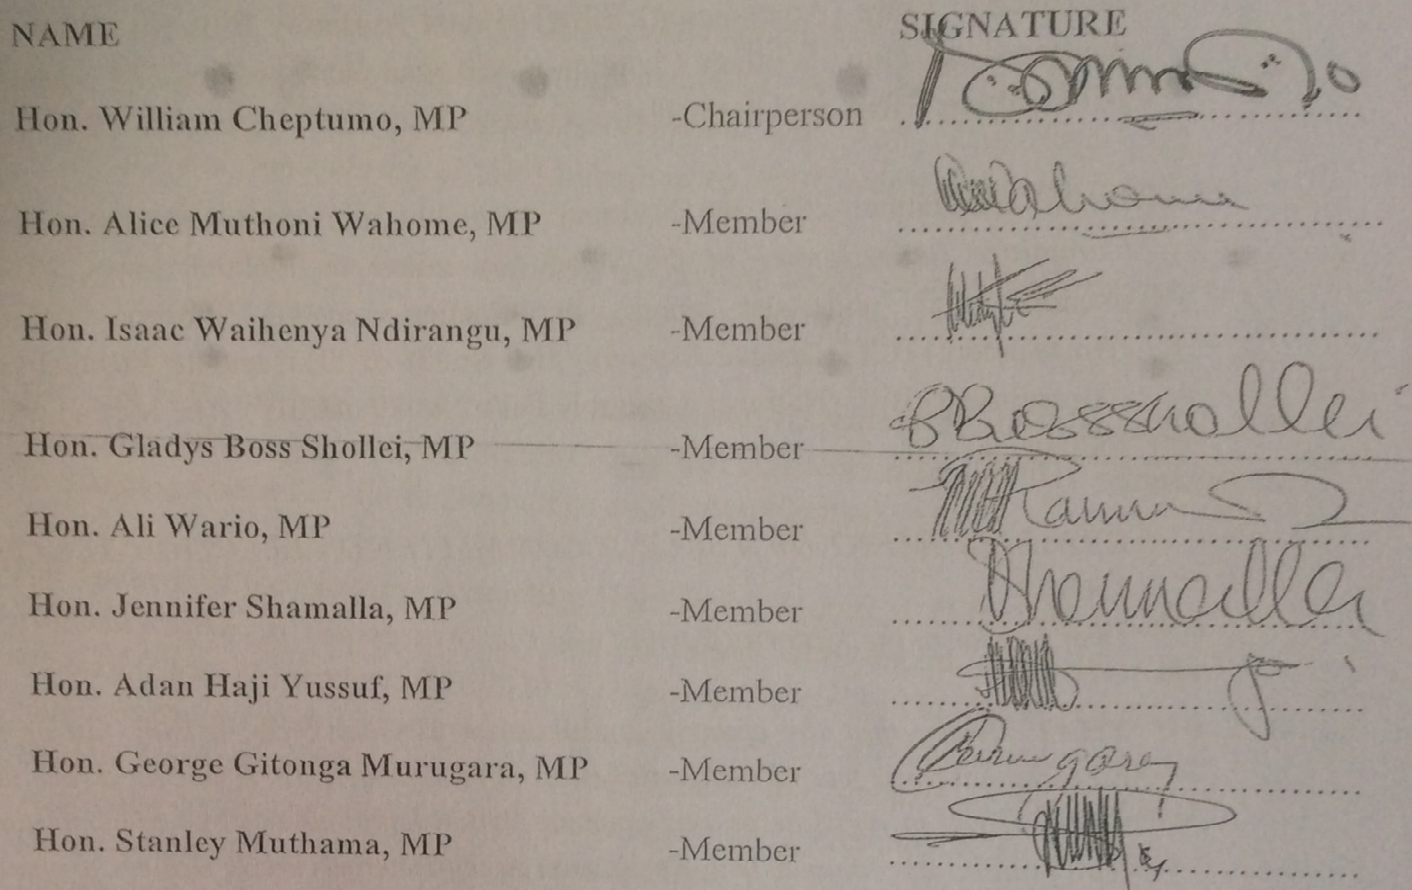 NAME SIGNATURE
Hon. William Cheptumo, MP -Chairperson
Hon. Alice Muthoni Wahome, MP -Member
Hon. Isaac Waihenya Ndirangu, MP -Member
Hon. Gladys Boss Shollei, MP -Member
Hon. Ali Wario, MP -Member
Hon. Jennifer Shamalla, MP -Member
Hon. Adan Haji Yussuf, MP -Member
Hon. George Gitonga Murugara, MP -Member
Hon. Stanley Muthama, MP -Member